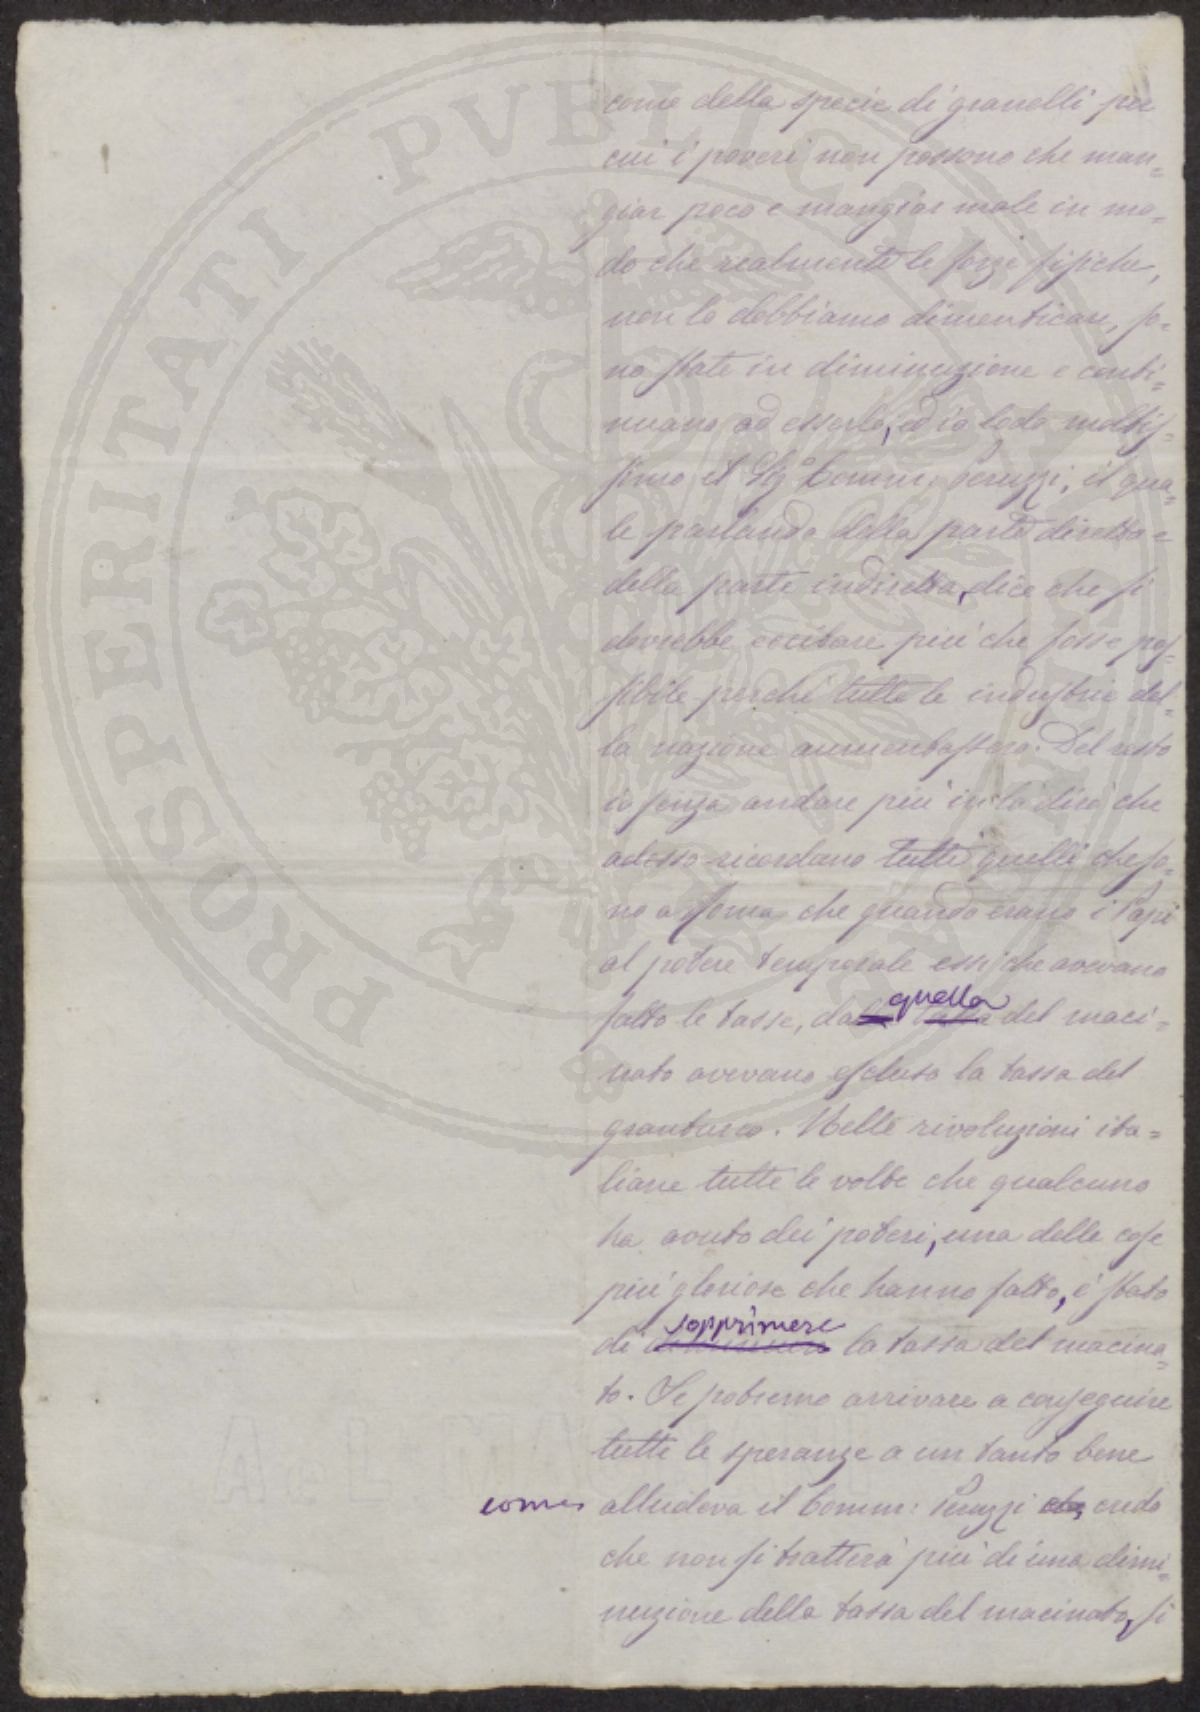 PROSPERITATI PVBLICAE
come della specie di granelli per
cui i poveri non possono che man=
giar poco e mangiar male in mo=
do che realmente le forze fisiche,
non lo dobbiamo dimenticare, so=
no state in diminuzione e conti=
nuano ad esserlo; ed io lodo moltis=
simo il Sig.º Comm. Peruzzi, il qua=
le parlando della parte diretta e
della parte indiretta, dice che si
dovrebbe eccitare più che fosse pos=
sibile perché tutte le industrie del=
la nazione aumentassero. Del resto
io senza andare più in là dirò che
adesso ricordano tutti quelli che so=
no a Roma che quando erano i Papi
al potere temporale essi che avevano
fatto le tasse, da quella del maci=
nato avevano escluso la tassa del
granturco. Nelle rivoluzioni ita=
liane tutte le volte che qualcuno
ha avuto dei poteri, una delle cose
più gloriose che hanno fatto, è stato
di sopprimere la tassa del macina=
to. Se potremo arrivare a conseguire
tutte le speranze a un tanto bene
come alludeva il Comm: Peruzzi che, credo
che non si tratterà più di una dimi=
nuzione della tassa del macinato, si